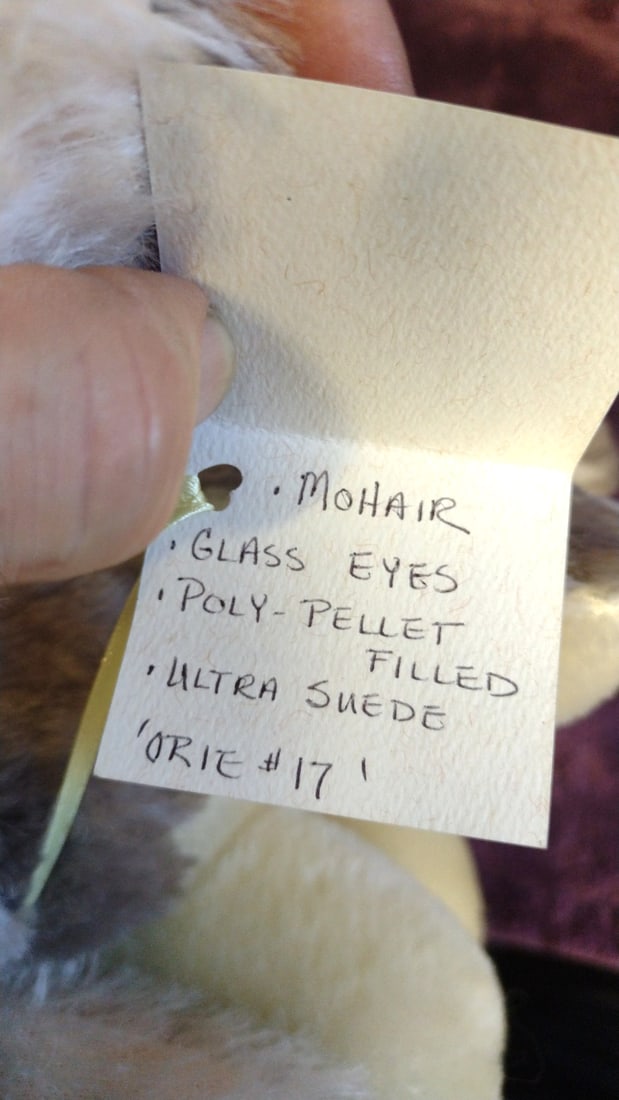 · MOHAIR
· GLASS EYES
· POLY-PELLET
FILLED
· ULTRA SUEDE
'ORIE #17'